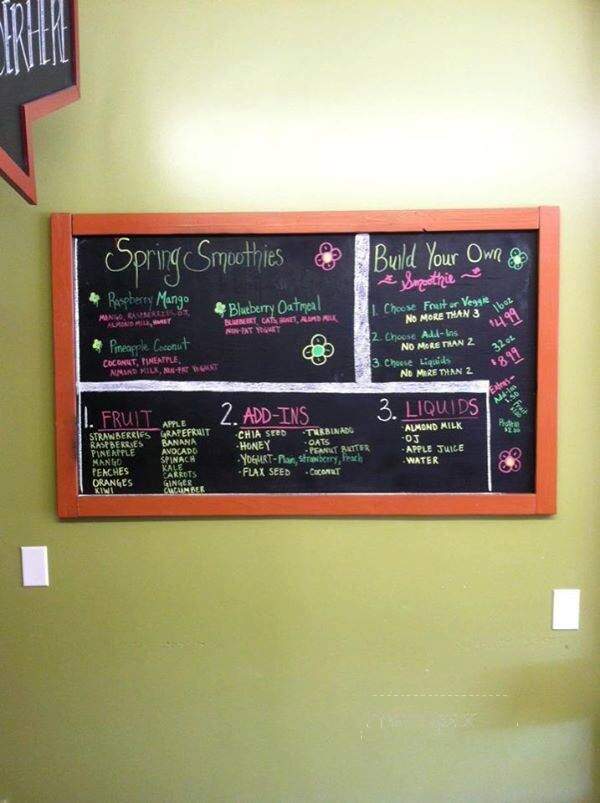 ERHERE
Spring Smoothies
Raspberry Mango
MANGO, RASPBERRIES, OJ,
ALMOND MILK, HONEY
Pineapple Coconut
COCONUT, PINEAPPLE,
ALMOND MILK, NON-FAT YOGURT
Blueberry Oatmeal
BLUEBERRY, OATS, HONEY, ALMOND MILK
NON-FAT YOGURT
Build Your Own
Smoothie
1. Choose Fruit or Veggie
NO MORE THAN 3
2. Choose Add-Ins
NO MORE THAN 2
3. Choose Liquids
NO MORE THAN 2
16oz
$4.99
32oz
$8.99
Extras-
Add-ins
.50
Fruit
Protein
1. FRUIT
STRAWBERRIES
RASPBERRIES
PINEAPPLE
MANGO
PEACHES
ORANGES
KIWI
APPLE
GRAPEFRUIT
BANANA
AVOCADO
SPINACH
KALE
CARROTS
GINGER
CUCUMBER
2. ADD-INS
-CHIA SEED
-HONEY
-YOGURT-Plain, Strawberry, Peach
-FLAX SEED
-TURBINADO
-OATS
-PEANUT BUTTER
-COCONUT
3. LIQUIDS
-ALMOND MILK
-OJ
-APPLE JUICE
-WATER